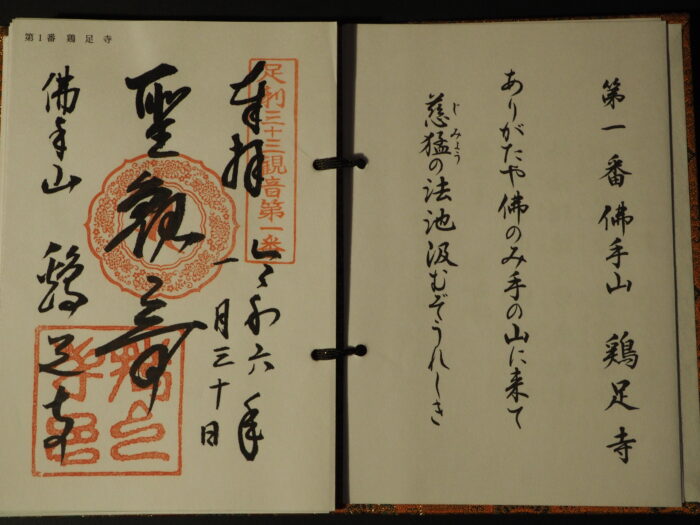 第一番佛手山 鶏足寺
ありがたや佛のみ手の山に来て
慈猛の法池汲むぞうれしき
じみょう
足利三十三観音第一番
奉拝 令和六年
一月三十日
聖観音
佛手山 鶏足寺
第1番 鶏足寺